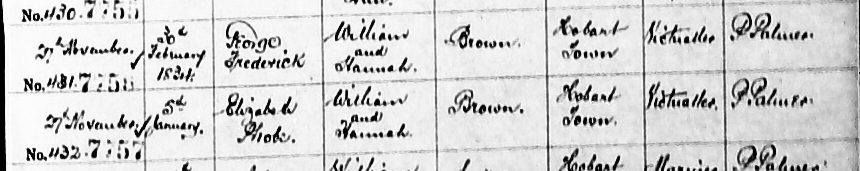 No. 430. 7755
27th November / 20th February 1834. George Frederick William and Hannah. Brown. Hobart Town Victualler P Palmer.
No. 431. 7756
27th November / 5th January. Elizabeth Phobe. William and Hannah. Brown. Hobart Town. Victualler. P Palmer.
No. 432. 7757
William Hobart P Palmer